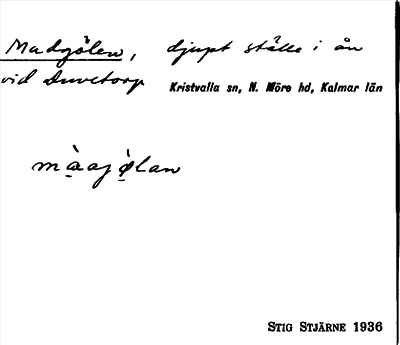 Madgölen, djupt ställe i ån
vid Duvetorp Kristvalla sn, N. Möre hd, Kalmar län
màajølan
STIG STJÄRNE 1936